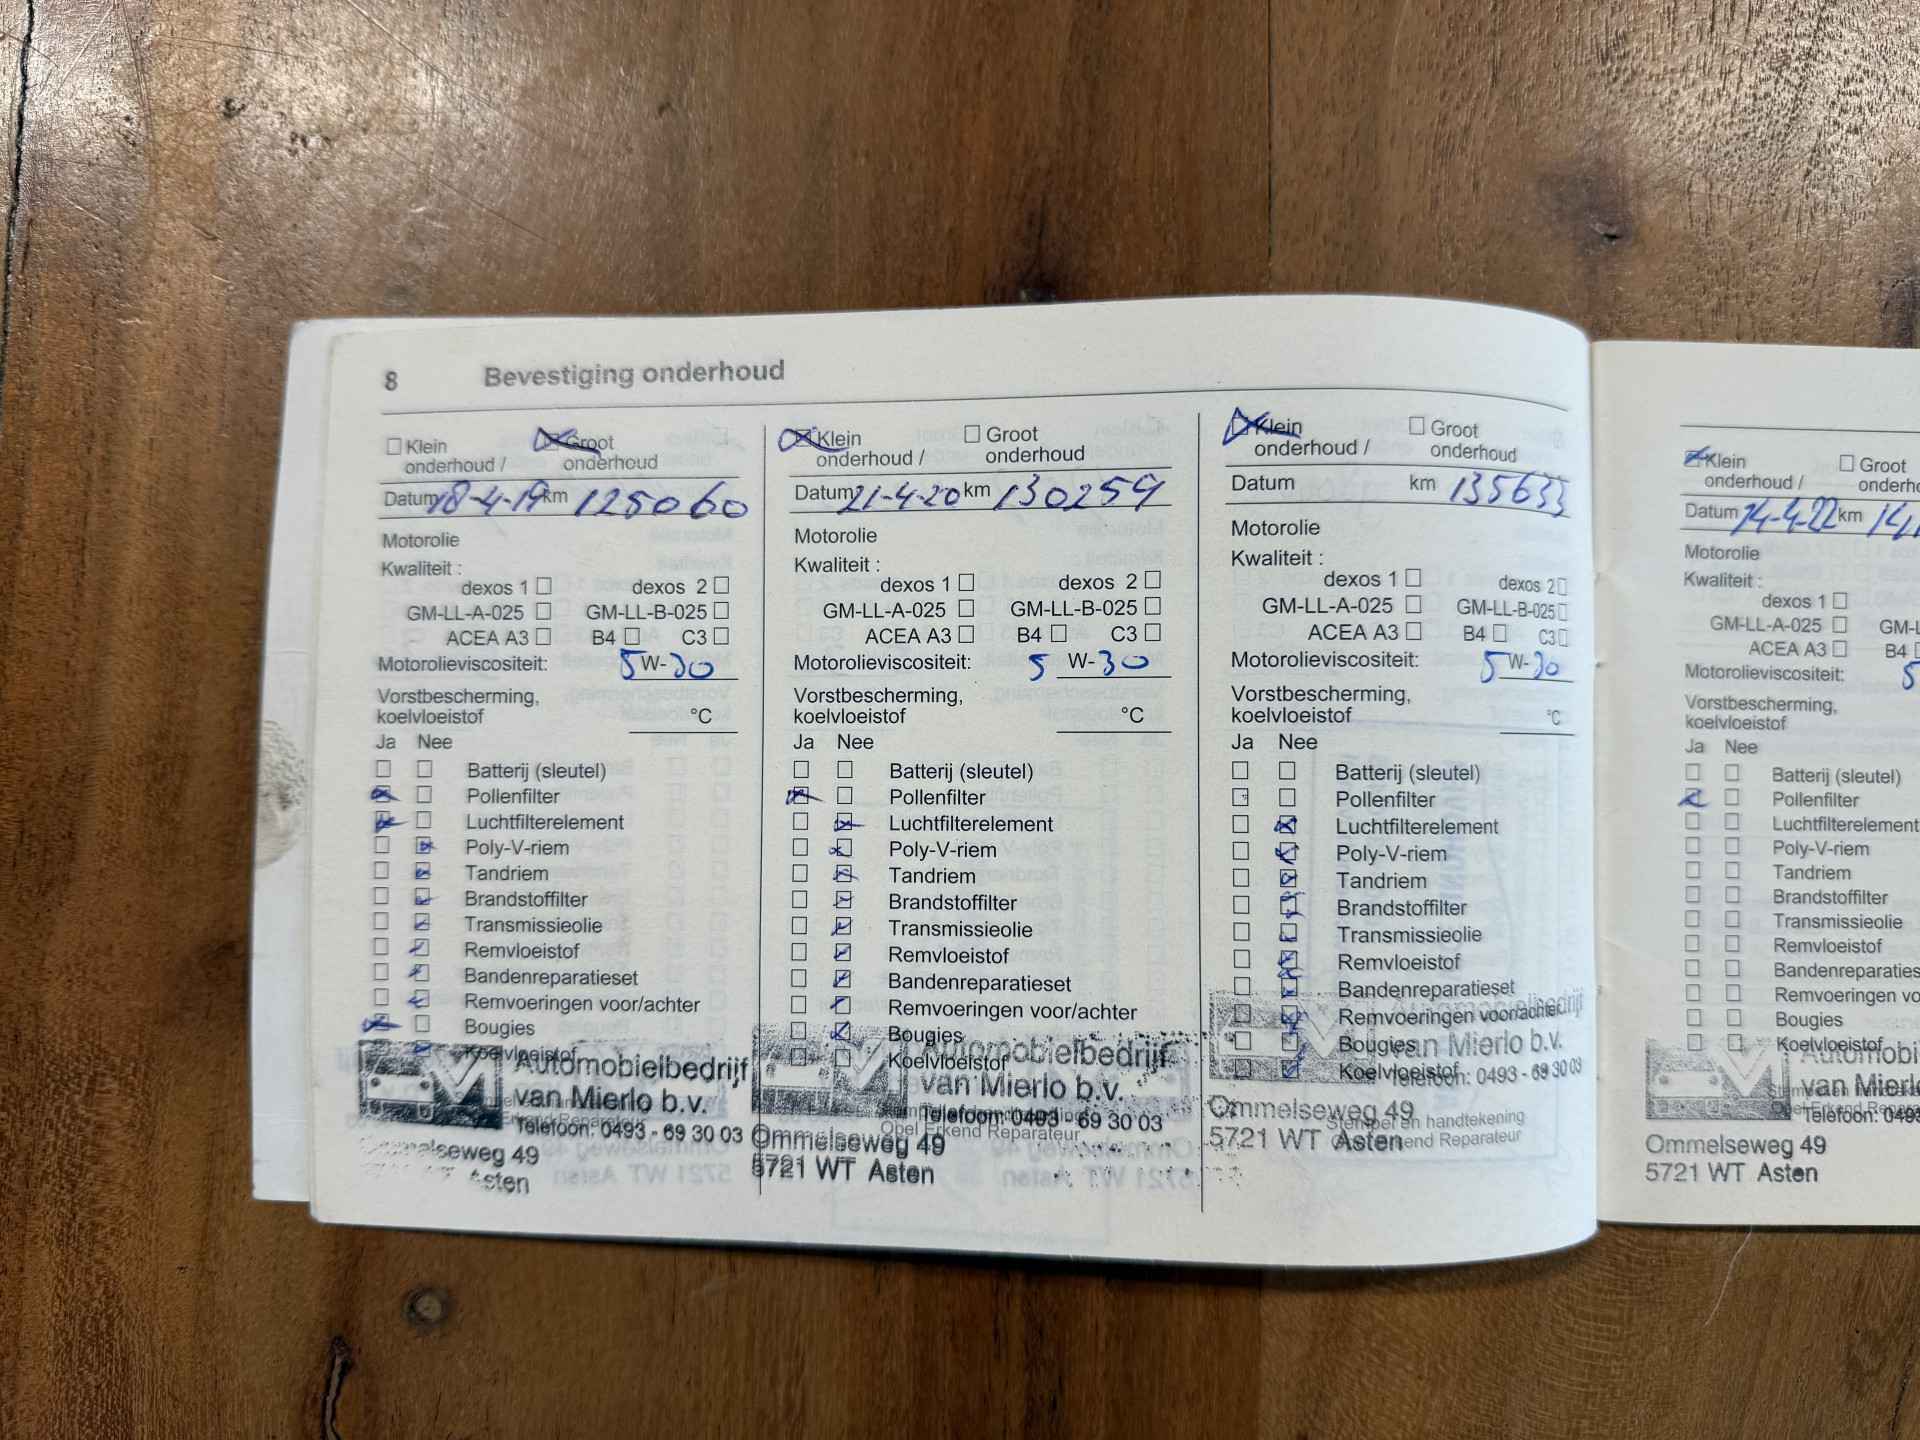 8 Bevestiging onderhoud
Klein onderhoud / Groot onderhoud
Datum 18-4-19 km 125060
Motorolie
Kwaliteit :
dexos 1 dexos 2
GM-LL-A-025 GM-LL-B-025
ACEA A3 B4 C3
Motorolieviscositeit: 5 W-30
Vorstbescherming,
koelvloeistof °C
Ja Nee
Batterij (sleutel)
Pollenfilter
Luchtfilterelement
Poly-V-riem
Tandriem
Brandstoffilter
Transmissieolie
Remvloeistof
Bandenreparatieset
Remvoeringen voor/achter
Bougies
Koelvloeistof
Automobielbedrijf
van Mierlo b.v.
Telefoon: 0493 - 69 30 03
Ommelseweg 49
Asten
Klein onderhoud / Groot onderhoud
Datum 21-4-20 km 130259
Motorolie
Kwaliteit :
dexos 1 dexos 2
GM-LL-A-025 GM-LL-B-025
ACEA A3 B4 C3
Motorolieviscositeit: 5 W-30
Vorstbescherming,
koelvloeistof °C
Ja Nee
Batterij (sleutel)
Pollenfilter
Luchtfilterelement
Poly-V-riem
Tandriem
Brandstoffilter
Transmissieolie
Remvloeistof
Bandenreparatieset
Remvoeringen voor/achter
Bougies
Koelvloeistof
Automobielbedrijf
van Mierlo b.v.
Telefoon: 0493 - 69 30 03
Opel Erkend Reparateur
Ommelseweg 49
5721 WT Asten
Klein onderhoud / Groot onderhoud
Datum km 135633
Motorolie
Kwaliteit :
dexos 1 dexos 2
GM-LL-A-025 GM-LL-B-025
ACEA A3 B4 C3
Motorolieviscositeit: 5 W-30
Vorstbescherming,
koelvloeistof °C
Ja Nee
Batterij (sleutel)
Pollenfilter
Luchtfilterelement
Poly-V-riem
Tandriem
Brandstoffilter
Transmissieolie
Remvloeistof
Bandenreparatieset
Remvoeringen voor/achter
Bougies
Koelvloeistof
Automobielbedrijf
van Mierlo b.v.
Telefoon: 0493 - 69 30 03
Stempel en handtekening
Erkend Reparateur
Ommelseweg 49
5721 WT Asten
Klein onderhoud / Groot
Datum 14-4-22 km
Motorolie
Kwaliteit :
dexos 1
GM-LL-A-025
ACEA A3 B4
Motorolieviscositeit: 5
Vorstbescherming,
koelvloeistof
Ja Nee
Batterij (sleutel)
Pollenfilter
Luchtfilterelement
Poly-V-riem
Tandriem
Brandstoffilter
Transmissieolie
Remvloeistof
Bandenreparaties
Remvoeringen vo
Bougies
Koelvloeistof
Automobi
van Mierlo
Telefoon: 049
Ommelseweg 49
5721 WT Asten